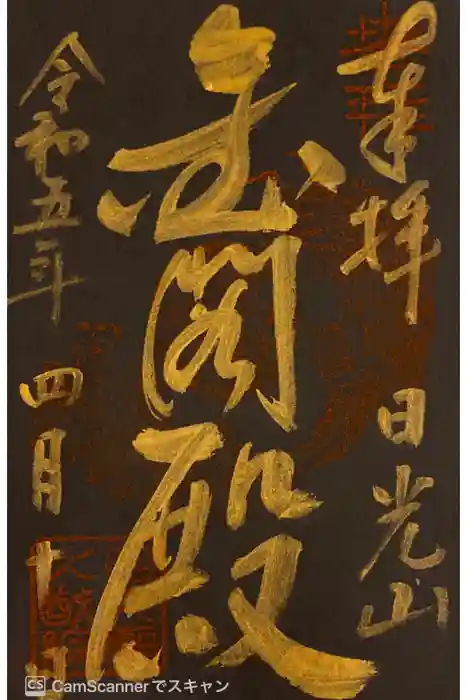 奉拝 日光山
金閣殿
令和五年 四月十
CS CamScannerでスキャン